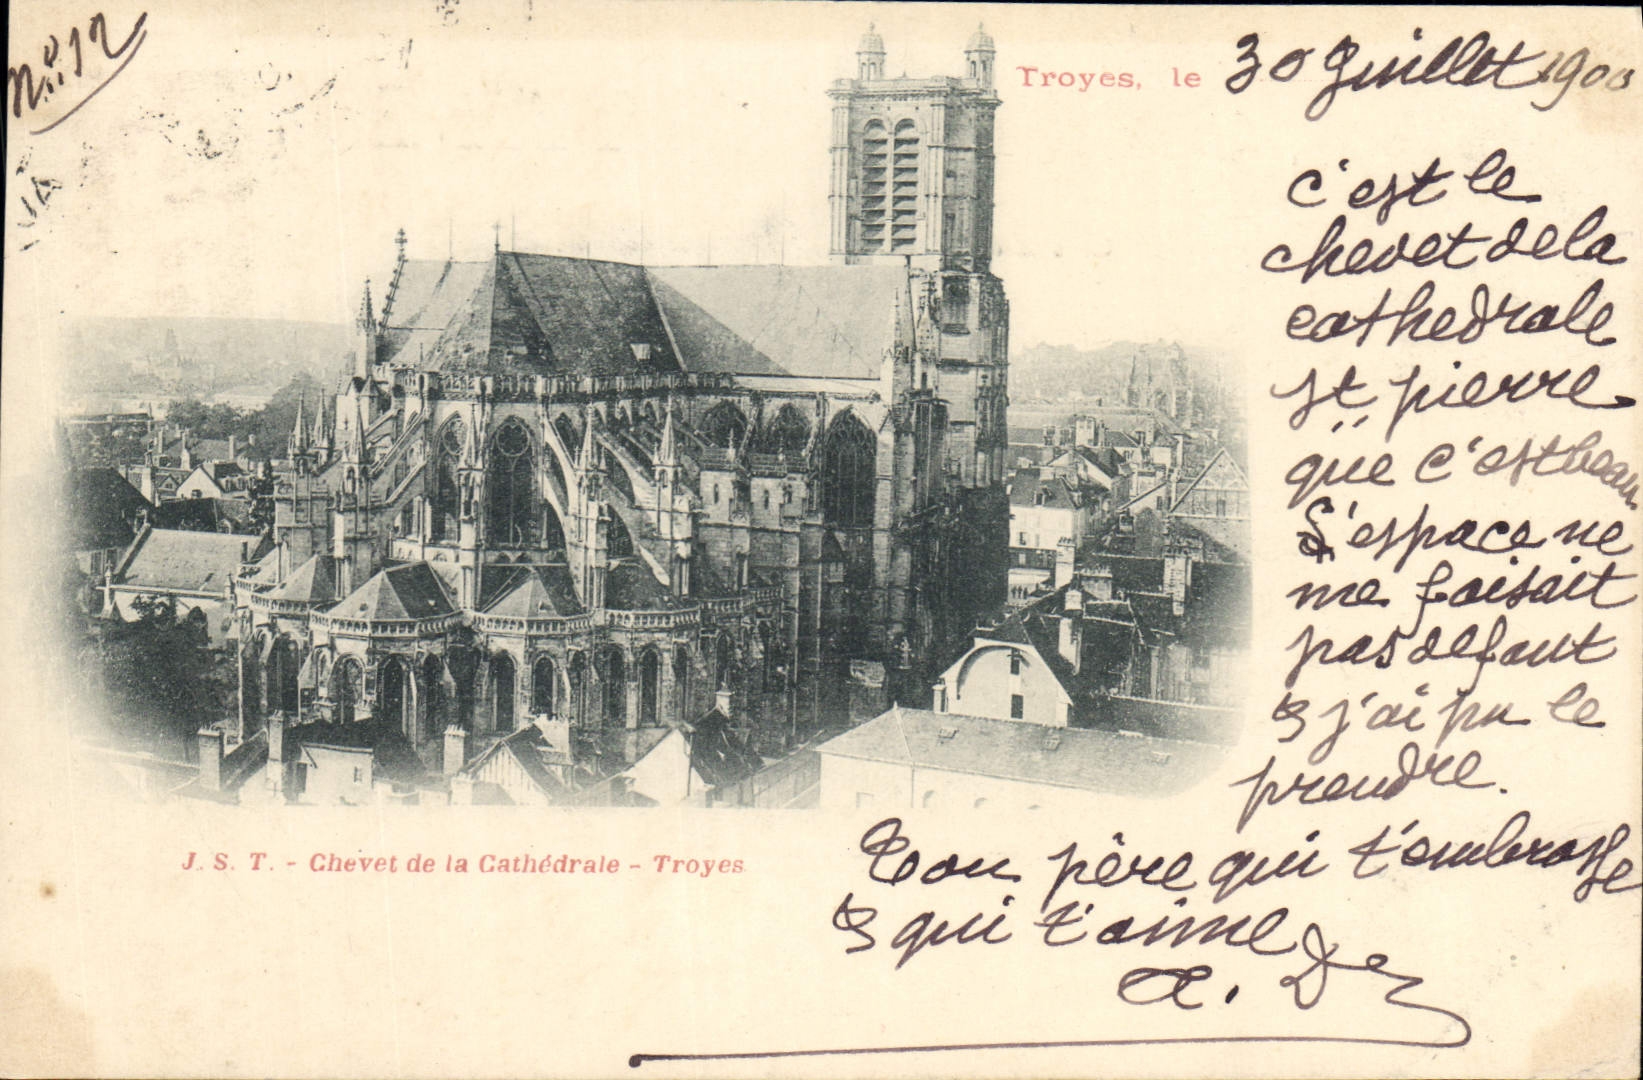 N°:12
Troyes, le 30 Juillet 1900
C'est le
chevet de la
cathedrale
st pierre
que c'est beau
L'espace ne
me faisait
pas defaut
& j'ai pu le
prendre.
Ton père qui t'embrasse
& qui t'aime
A. D
J. S. T. - Chevet de la Cathédrale - Troyes